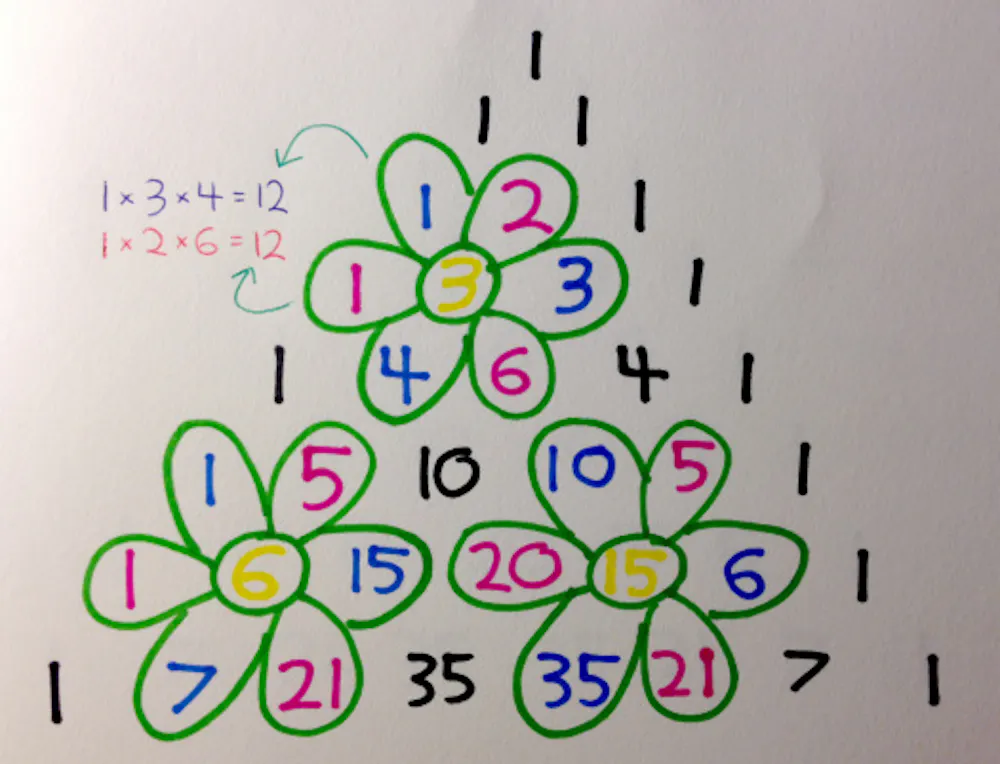 1
1 1
1 2 1
1 × 3 × 4 = 12
1 × 2 × 6 = 12
1 3 3 1
1 4 6 4 1
1 5 10 10 5 1
1 6 15 20 15 6 1
1 7 21 35 35 21 7 1